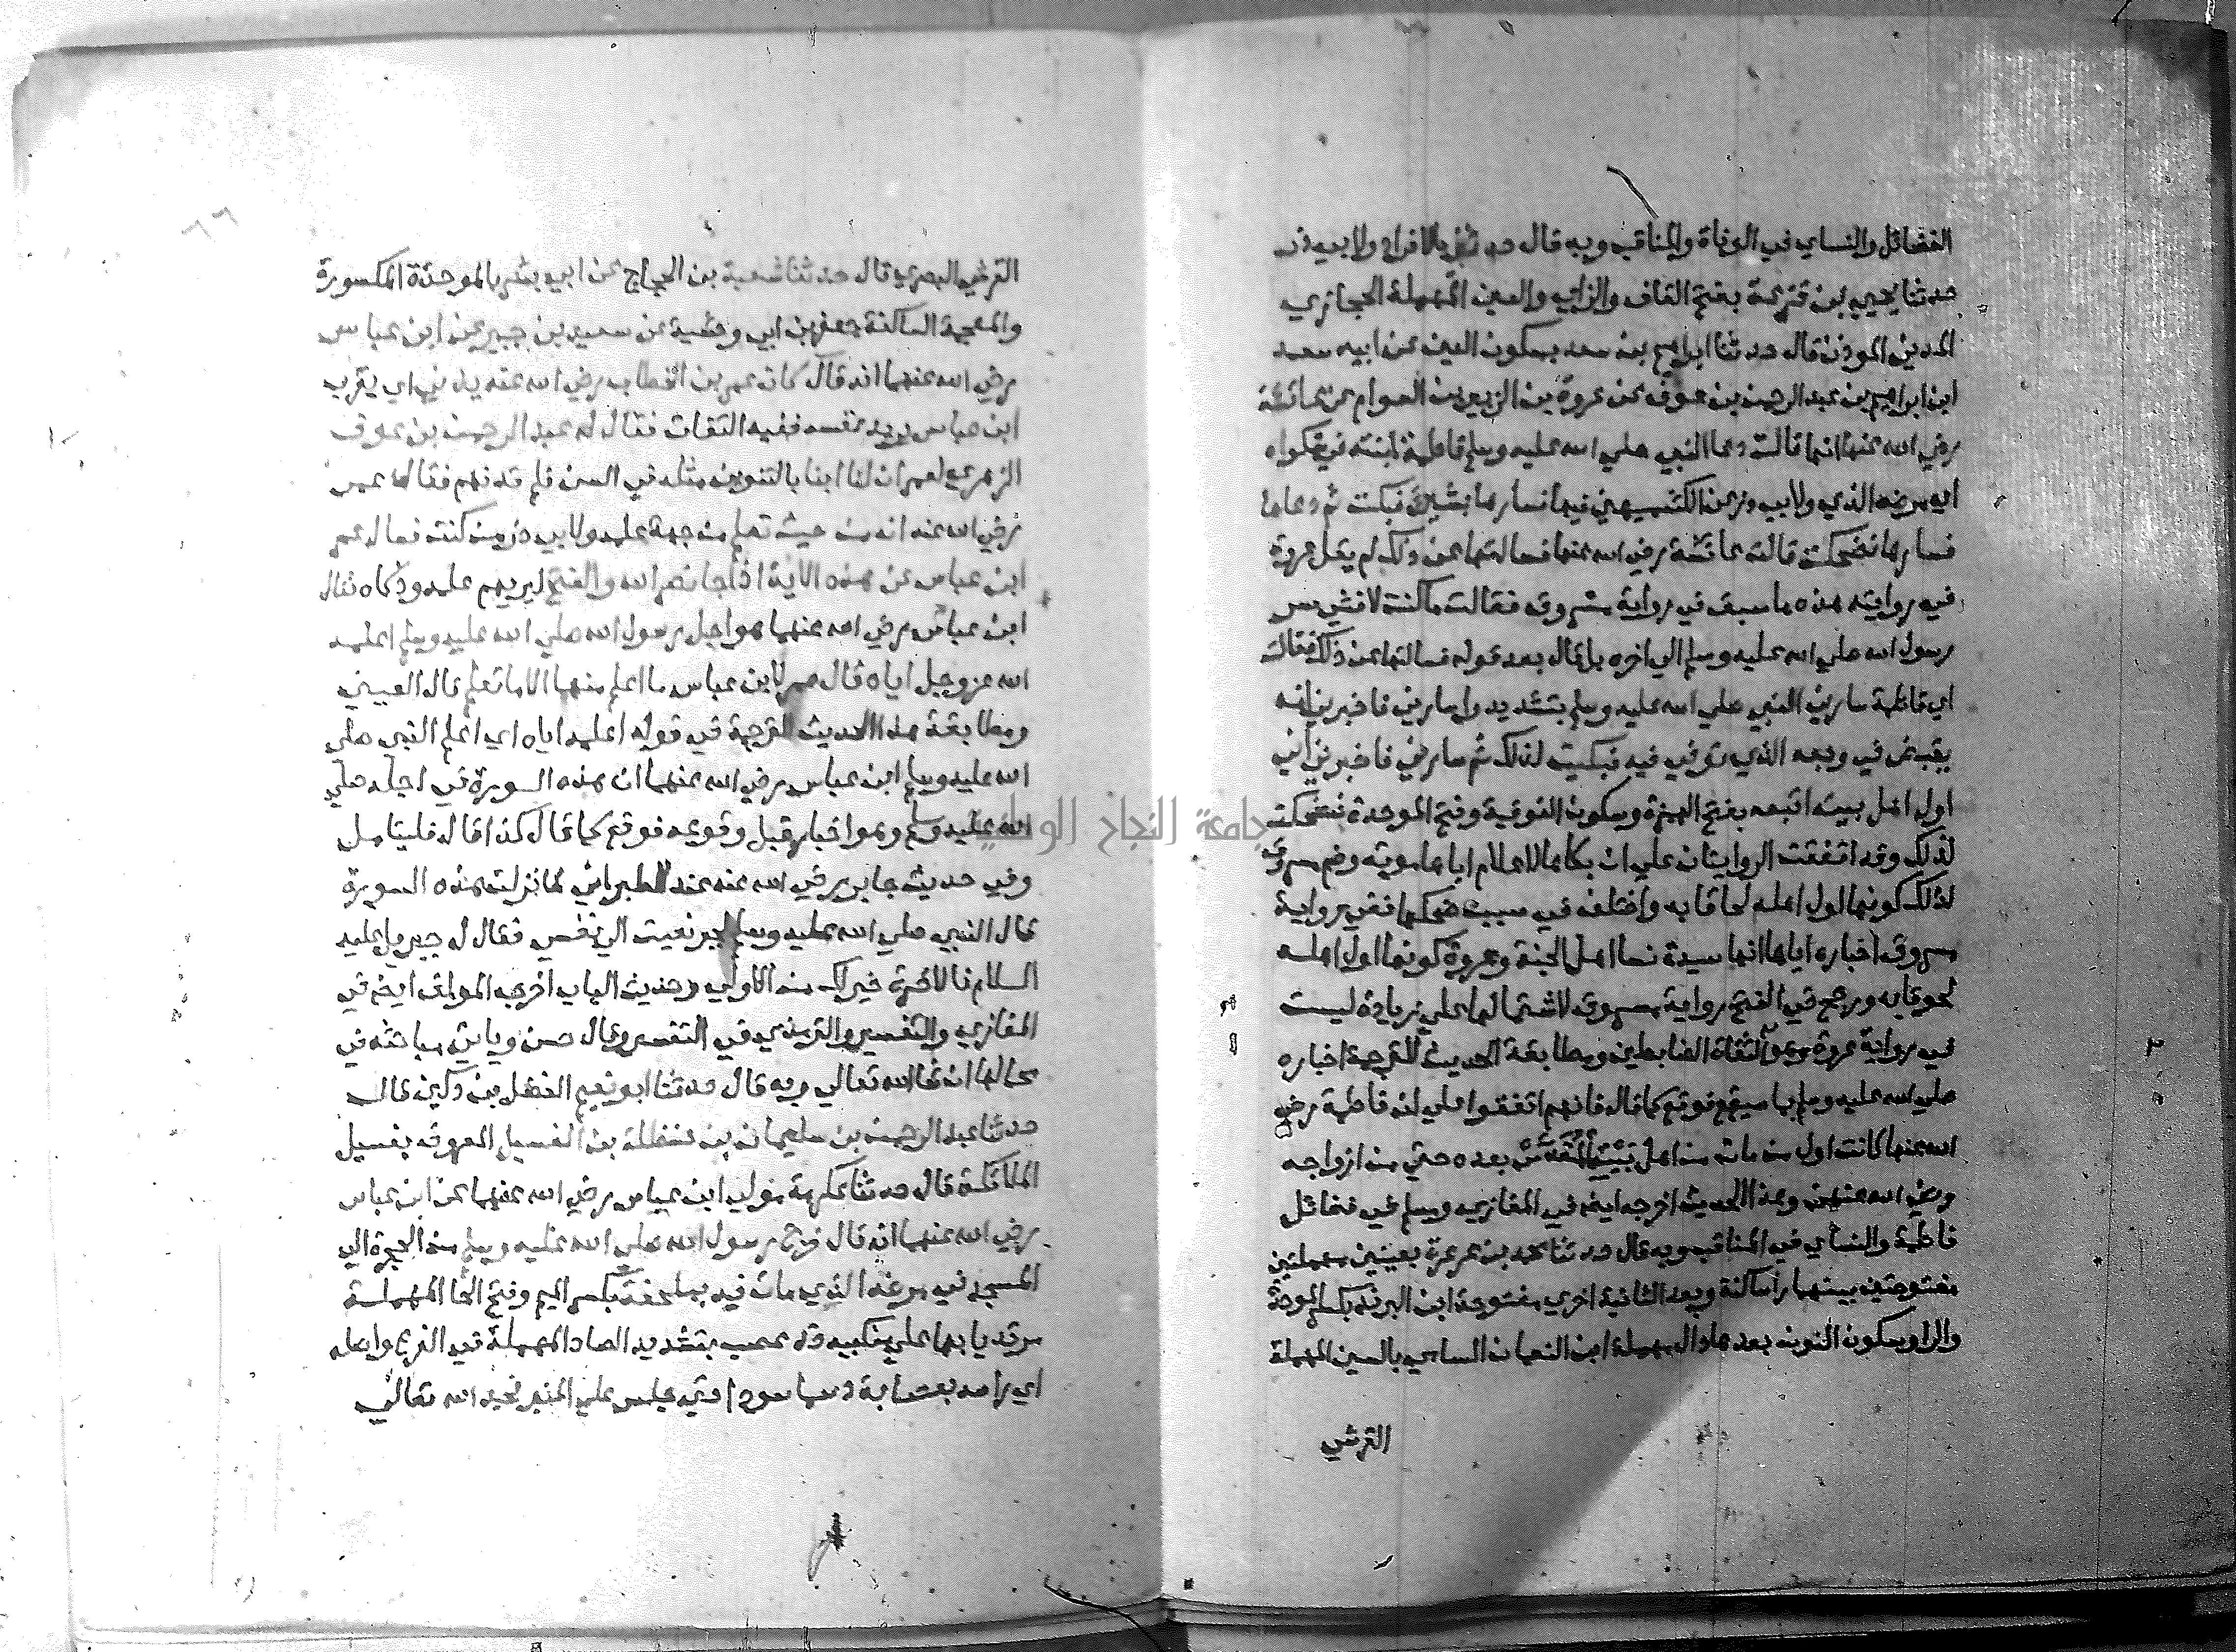 الفضائل والنساي في الوفاة والمناقب وبه قال حدثني بالافراد ولابي ذر
حدثنا يحيي بن قزعة بفتح القاف والزاي والعين المهملة الحجازي
المديني الموذن قال حدثنا ابراهيم بن سعد بسكون العين عن ابيه سعد
ابن ابراهيم بن عبد الرحمن بن عوف عن عروة بن الزبير بن العوام عن عائشة
رضي الله عنها انها قالت دعا النبي صلي الله عليه وسلم فاطمة ابنته في شكواه
اي مرضه الذي ولابي ذر عن الكشميهني فيها فسارها بشيئ فبكت ثم دعاها
فسارها فضحكت قالت عائشة رضي الله عنها فسالتها عن ذلك لم يقل عروة
في روايته هذه ما سبق في رواية مسروق فقالت ما كنت لافشي سر
رسول الله صلي الله عليه وسلم الي اخره بل قال بعد قوله فسالتها عن ذلك فقالت
اي فاطمة سارني النبي صلي الله عليه وسلم بتشديد را سارني فاخبرني انه
يقبض في وجعه الذي توفي فيه فبكيت لذلك ثم سارني فاخبرني اني
اول اهل بيته اتبعه بفتح الهمزة وسكون الفوقية وفتح الموحدة فضحكت
لذلك وقد اتفقت الروايتان علي ان بكاها لاعلام اياها موته وضم مسروق
لذلك كونها اول اهله لحاقا به واختلف في سبب ضحكها ففي رواية
مسروق اخباره اياها انها سيدة نسا اهل الجنة وعروة كونها اول اهله
لحوقا به ورجح في الفتح رواية مسروق لاشتمالها علي زيادة ليست
في رواية عروة وهو الثقاة الضابطين ومطابقة الحديث للترجمة اخباره
صلي الله عليه وسلم بما سيقع فوقع كما قال فانهم اتفقوا علي ان فاطمة رضي
الله عنها كانت اول من مات من اهل بيته بعده حتي من ازواجه
ورضي الله عنهن وهذا الحديث اخرجه ايضه في المغازي ومسلم في فضائل
فاطمة والنساي في المناقب وبه قال حدثنا محمد بن عرعرة بعينين مهملتين
مفتوحتين بينهما را ساكنة وبعد الثانية اخري مفتوحة ابن البرند بكسر الموحدة
والرا وسكون النون بعدها دال مهملة ابن النعمان السامي بالسين المهملة
القرشي
القرشي البصري قال حدثنا شعبة بن الحجاج عن ابي بشر بالموحدة المكسورة
والمعجمة الساكنة جعفر بن ابي وحشية عن سعيد بن جبير عن ابن عباس
رضي الله عنهما انه قال كان عمر بن الخطاب رضي الله عنه يدني اي يقرب
ابن عباس يريد نفسه ففيه التفات فقال له عبد الرحمن بن عوف
الزهري لعمر ان لنا ابنا بالتنوين مثله في السن فلم قدمهم فقال عمر
رضي الله عنه انه من حيث تعلم من جهة علمه ولابي ذر من كنت فسال عمر
ابن عباس عن هذه الاية اذا جا نصر الله والفتح ليريهم علمه وذكاه فقال
ابن عباس رضي الله عنهما هو اجل رسول الله صلي الله عليه وسلم اعلمه
الله عز وجل اياه قال عمر لابن عباس ما اعلم منها الا ما تعلم قال العيني
ومطابقة هذا الحديث للترجمة في قوله اعلمه اياه اي اعلم النبي صلي
الله عليه وسلم ابن عباس رضي الله عنهما ان هذه السورة في اجله صلي
الله عليه وسلم وهو اخبار قبل وقوعه فوقع كما قال كذا قال فليتامل
وفي حديث جابر رضي الله عنه عند الطبراني لما نزلت هذه السورة
قال النبي صلي الله عليه وسلم لجبريل نعيت الي نفسي فقال له جبريل عليه
السلام فالاخرة خير لك من الاولي وحديث الباب اخرجه المولف ايضه في
المغازي والتفسير والترمذي في التفسير وقال حسن وياتي مباحثه في
محالها ان شا الله تعالي وبه قال حدثنا ابو نعيم الفضل بن دكين قال
حدثنا عبد الرحمن بن سليمان بن حنظلة بن الغسيل المعروف بغسيل
الملائكة قال حدثنا عكرمة مولي ابن عباس رضي الله عنهما عن ابن عباس
رضي الله عنهما انه قال خرج رسول الله صلي الله عليه وسلم من الحجرة الي
المسجد في مرضه الذي مات فيه بملحفة بكسر الميم وفتح الحا المهملة
مرتديا بها علي منكبيه قد عصب بتشديد الصاد المهملة في الفرع واصله
اي راسه بعصابة دسما سودا حتي جلس علي المنبر فحمد الله تعالي
٦٦
جامعة النجاح الوطنية